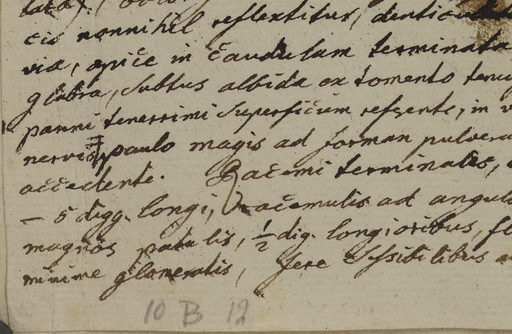 cis nonnihil reflexitus, denticul
via, apice in caudulam terminata
glabra, subtus albida ex tomento tenu
panni tenerrimi superficium refgente, in v
nervis paulo magis ad forman pulvera
accedente. Racemi terminales,
– 5 digg. longi, racemulis ad angul
magnos patulis, ½ dig. longioribus, fl
minime glomeratis, fere sessilibus
10 B 12